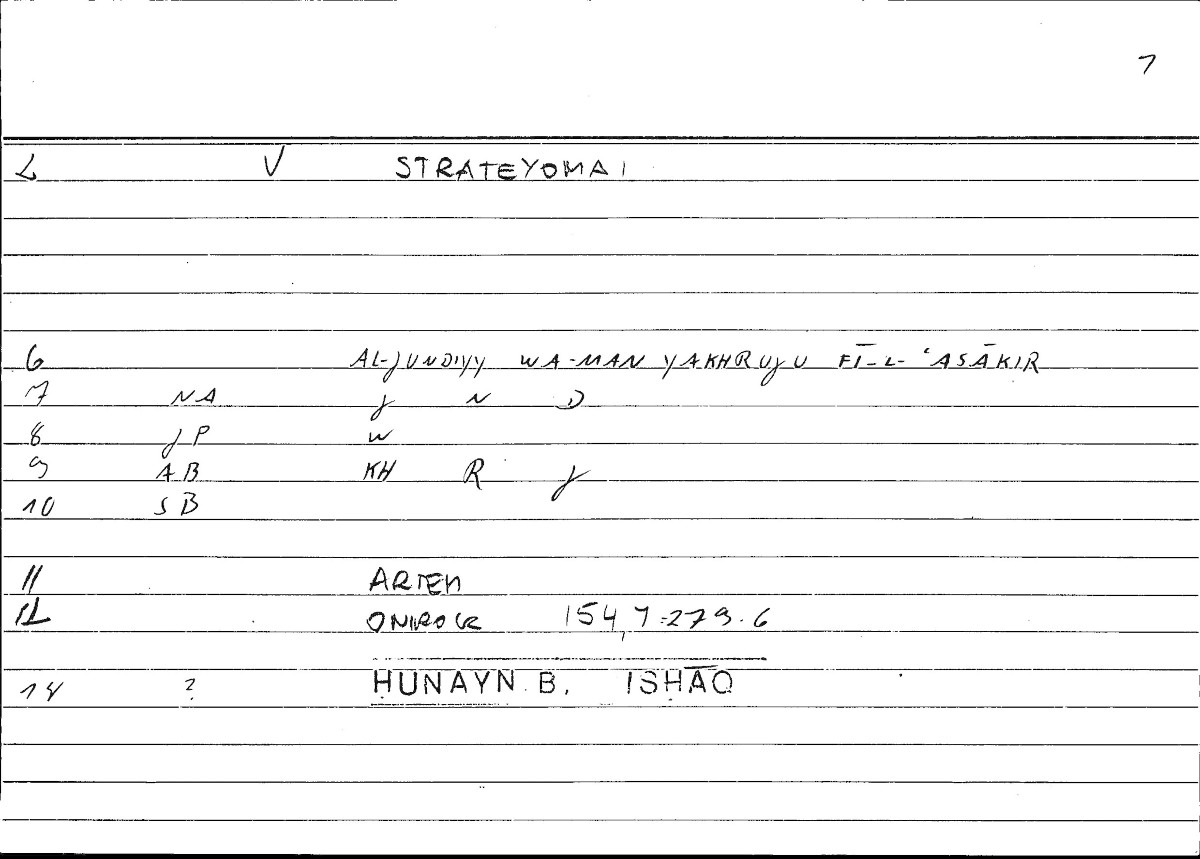 7
2 V STRATEYOMAI
6 AL-JUNDIYY WA-MAN YAKHRUJU FĪ-L-ʿASĀKIR
7 NA J N D
8 JP W
9 AB KH R J
10 SB
11 ARTEM
12 ONIROCR 154,7=279.6
14 ? ḤUNAYN B. ISḤĀQ